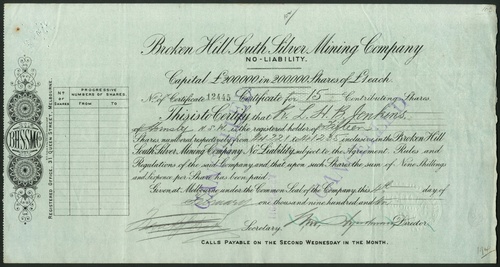 Broken Hill South Silver Mining Company
NO-LIABILITY.
Capital £200000 in 200000 Shares of £1 each.
No. of Certificate 12445 Certificate for 15 Contributing Shares.
This is to Certify that Mr. L. H. B. Jenkins
of N.S.W. is the registered holder of Fifteen
Shares numbered respectively from to inclusive, in the Broken Hill
South Silver Mining Company, No Liability, subject to the Agreement Rules and
Regulations of the said Company, and that upon such Shares the sum of Nine Shillings
and Sixpence per Share has been paid.
Given at Melbourne under the Common Seal of the Company, this day of
one thousand nine hundred and
Secretary. Director
CALLS PAYABLE ON THE SECOND WEDNESDAY IN THE MONTH.
REGISTERED OFFICE: 31 QUEEN STREET MELBOURNE.
BHSSMCo
No OF SHARES
PROGRESSIVE NUMBERS OF SHARES.
FROM
TO